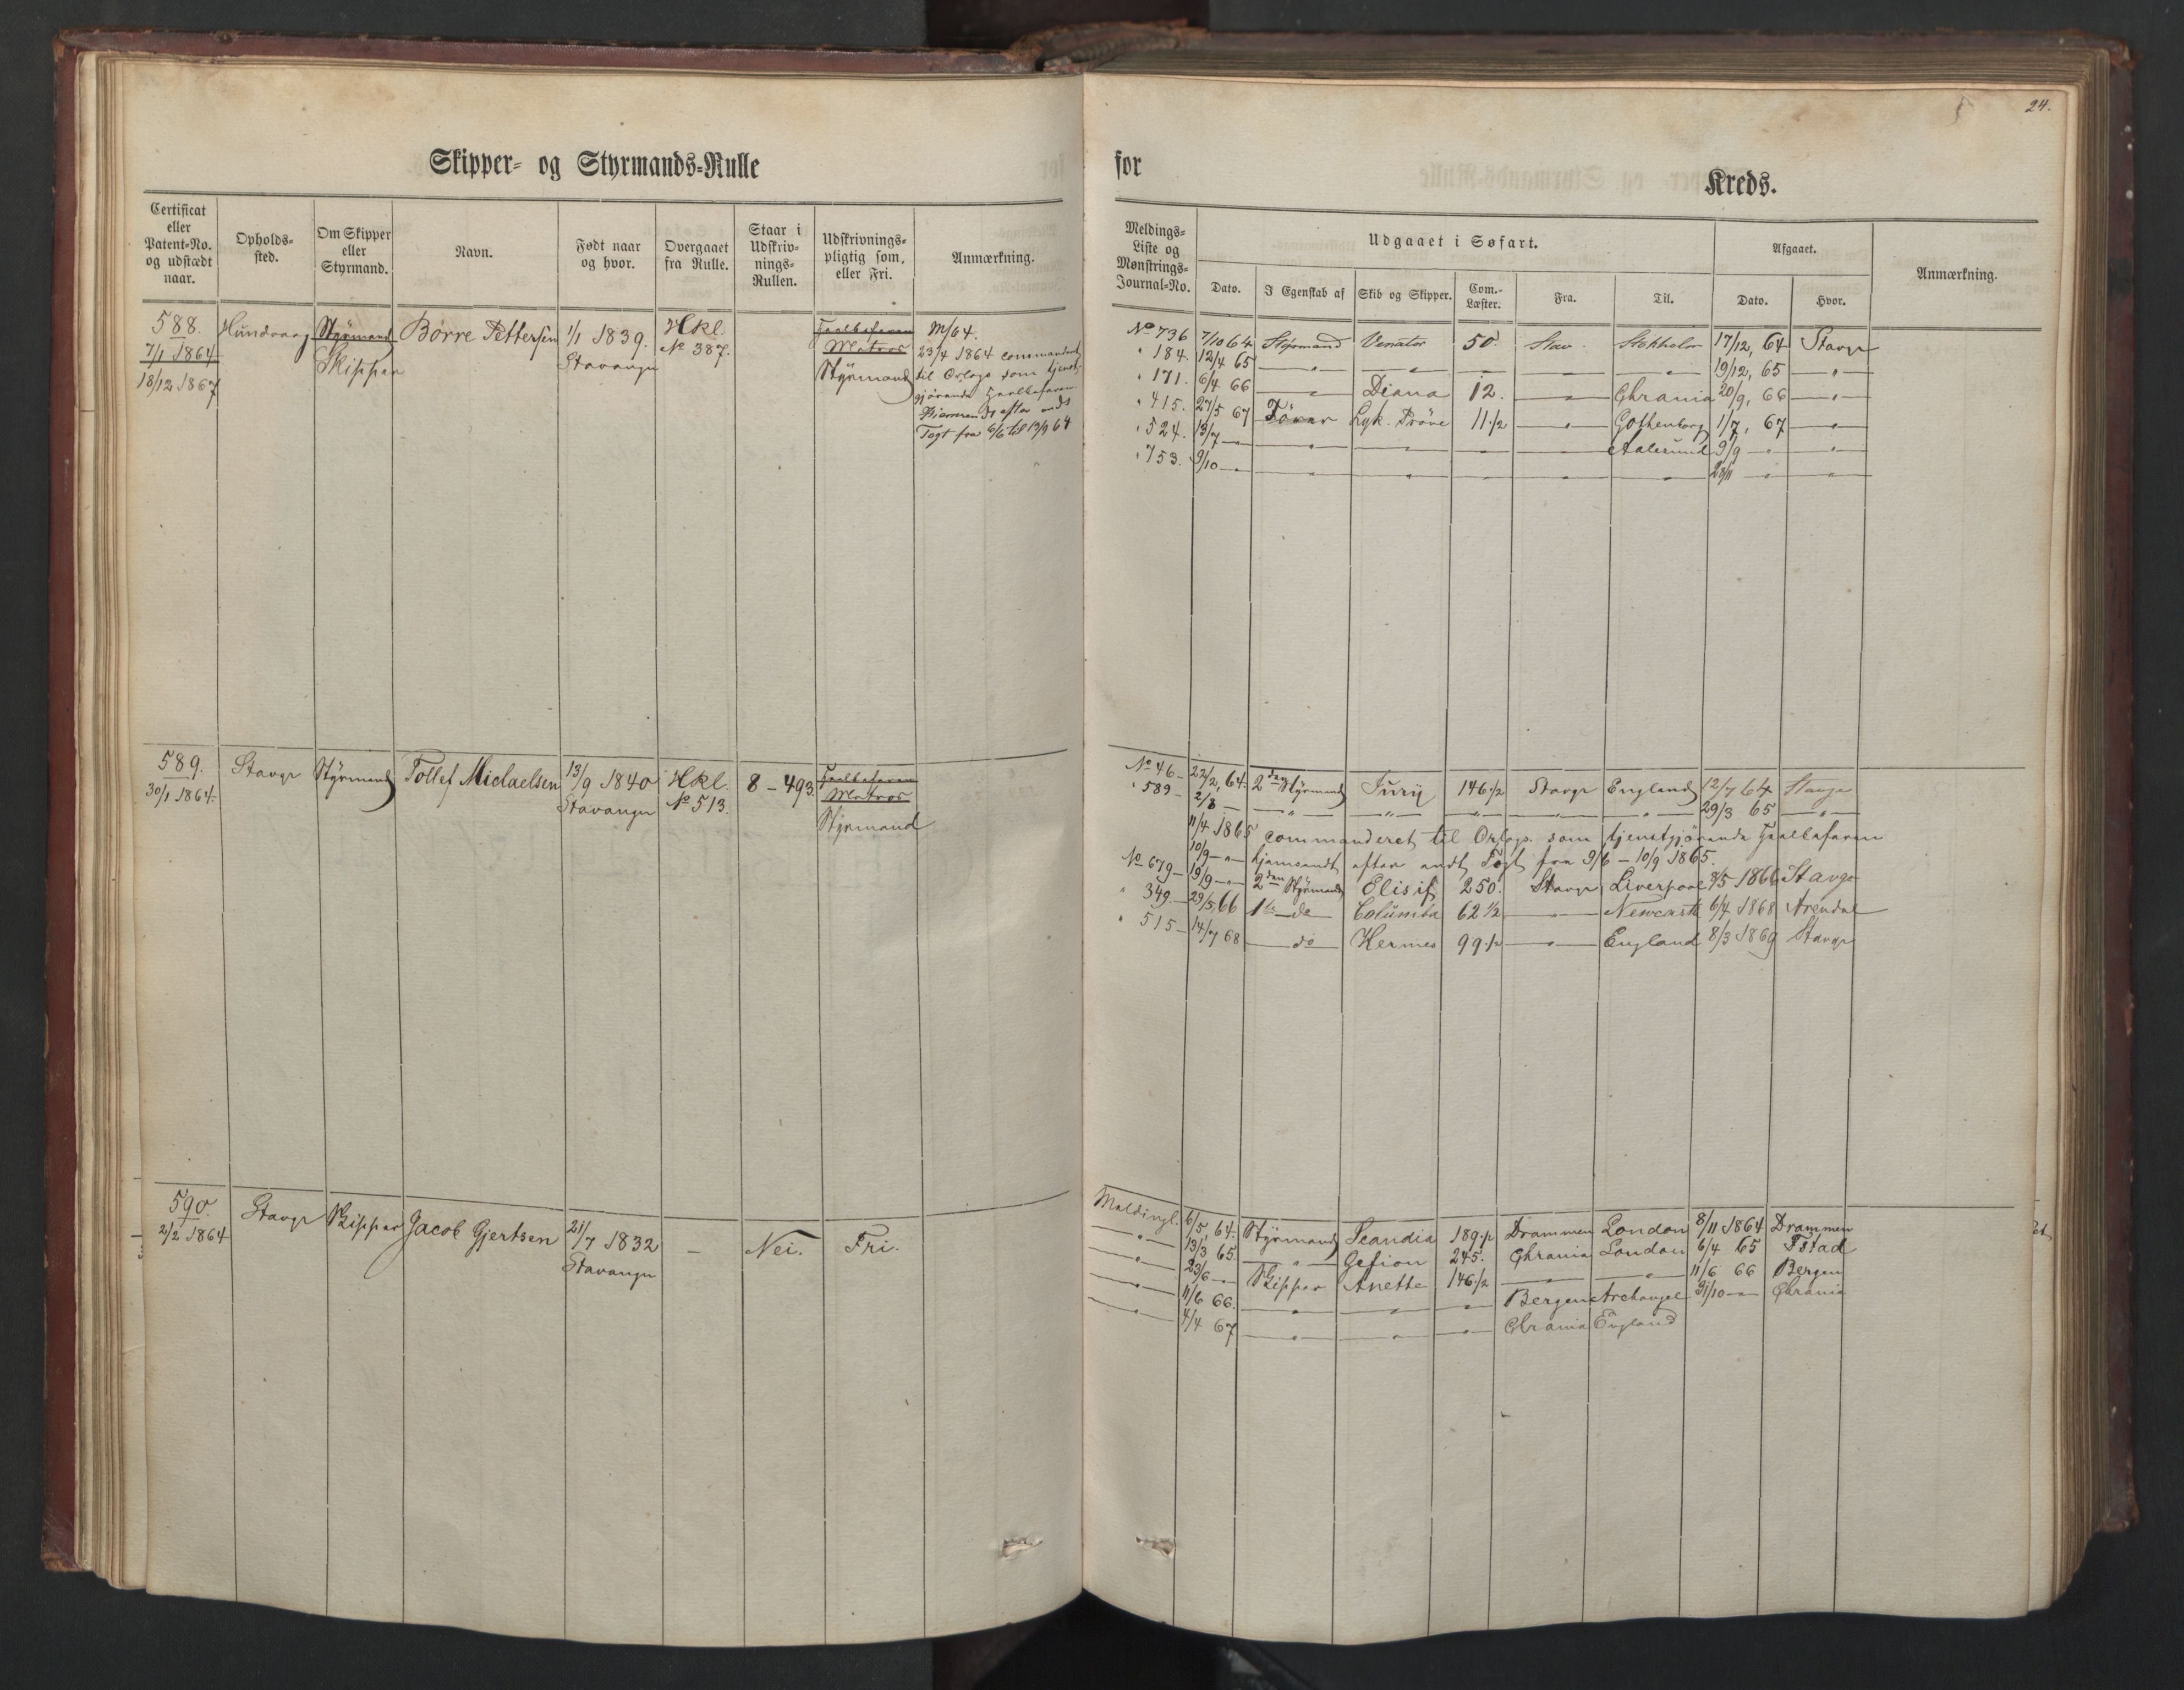 24.
Skipper- og Styrmands-Rulle
for
Kreds.
Certificat eller Patent-No. og udstædt naar.
Opholds-sted.
Om Skipper eller Styrmand.
Navn.
Født naar og hvor.
Overgaaet fra Rulle.
Staar i Udskriv-nings-Rullen.
Udskrivnings-pligtig som, eller Fri.
Anmærkning.
Meldings-Liste og Mønstrings-Journal-No.
Udgaaet i Søfart.
Dato.
I Egenskab af
Skib og Skipper.
Com.-Læster.
Fra.
Til.
Afgaaet.
Dato.
Hvor.
Anmærkning.
588. Hundvaag Styrmand Börre Pettersen 1/1 1839. Hkl. Matros M/64.
7/1 1864 Skipper Stavanger No 387. Styrmand 23/4 1864 commanderet
18/12 1867 til Orlogs som tjenst-
gjörende
Hjemsendt efter endt
Togt fra 6/6 til 13/9 64
No 736 7/10 64 Styrmand Venator 50 Stav. Stokholm 17/12, 64 Stavgr
" 184. 12/4 65 — " — — " — — — " — — " — 19/12, 65 — " —
" 171. 6/4 66 — " — Diana 12. — " — Chrania 20/9, 66 — " —
" 415. 27/5 67 Förer Lyk. Pröve 11 1/2 — " — Gothenborg 1/7, 67 — " —
" 524. 13/7 — " — " — — " — — — " — Aalesund 9/9 — " — — " —
" 753. 9/10 — " — " — — " — — — " — — " — 23/11 — " — — " —
589. Stavgr Styrmand Tollef Michaelsen 13/9 1840 Hkl. 8 – 493. Matros
30/1 1864. Stavanger No 513. Styrmand
No 46 – 22/2, 64. 2den Styrmand Jury 146 1/2 Stavgr England 12/7 64 Stavgr
" 589 – 2/8 — — " — — " — — " — — " — — " — 29/3 65 — " —
11/4 1865 commanderet til Orlogs. som tjenstgjörende
10/9 – " – hjemsendt efter endt Togt fra 9/6 – 10/9 1865.
No 679 – 19/9 – " – 2den Styrmand Elisif 250. Stavgr Liverpool 3/5 1866 Stavgr
" 349. – 29/5, 66 1ste do Columba 62 1/2 — " — Newcastle 6/4 1868 Arendal
" 515 – 14/7 68 — do Hermes 99 1/2 — " — England 8/3 1869 Stavgr
590. Stavgr Skipper Jacob Gjertsen 21/7 1832 — Nei. Fri.
2/2 1864 Stavanger
Meldingl. 6/5, 64. Styrmand Scandia 189 1/2 Drammen London 8/11 1864 Drammen
— " — 13/3 65. — " — Gefion 245. Chrania London 6/4 65 Fstad
— " — 23/6 – " – Skipper Anette 146 1/2 — " — — " — 11/6 66 Bergen
— " — 11/6 66. — " — — " — — " — Bergen Archangel 31/10 – " – Chrania
— " — 4/4 67 — " — — " — — " — Chrania England